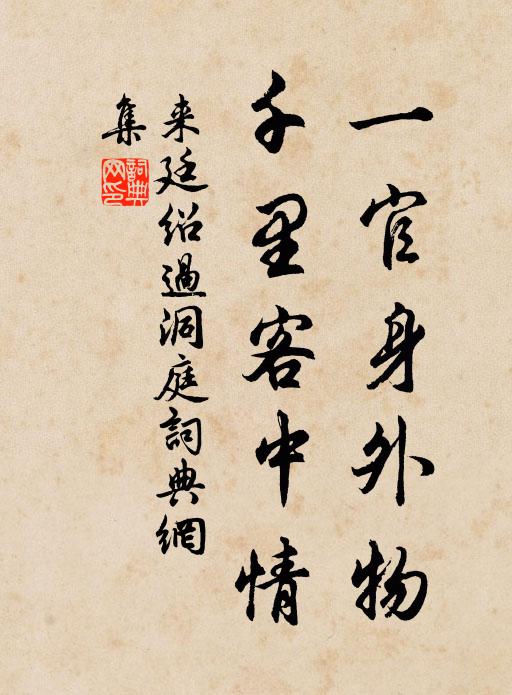 一官身外物
千里客中情
来廷绍過洞庭詞典網
集
詞典
网印